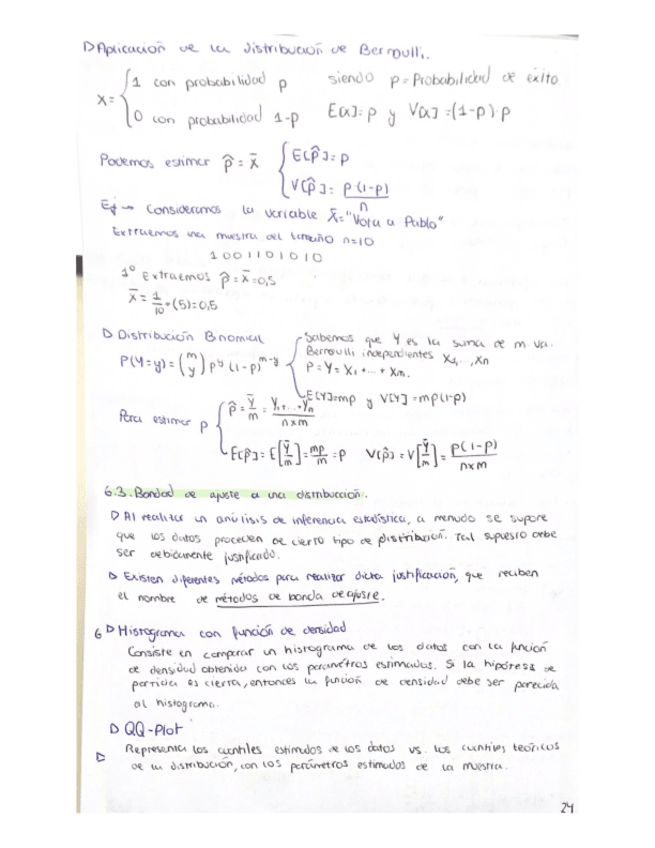 ▷ Aplicación de la distribución de Bernoulli.
X = { 1 con probabilidad p siendo p = Probabilidad de éxito
0 con probabilidad 1-p E[X] = p y V[X] = (1-p)·p
Podemos estimar p̂ = x̄ { E[p̂] = p
V[p̂] = p(1-p)/n
Ej → Consideramos la variable X = "Vota a Pablo"
Extraemos una muestra del tamaño n=10
1 0 0 1 1 0 1 0 1 0
1º Extraemos p̂ = x̄ = 0,5
x̄ = 1/10 · (5) = 0,5
▷ Distribución Binomial
P(Y=y) = (m y) p^y (1-p)^(m-y) { Sabemos que Y es la suma de m v.a.
Bernoulli independientes X1,...,Xn
P = Y = X1 + ... + Xm.
E[Y] = mp y V[Y] = mp(1-p)
Para estimar p { p̂ = Ȳ/m = Y1+...+Yn / n×m
E[p̂] = E[Ȳ/m] = mp/m = p V[p̂] = V[Ȳ/m] = p(1-p)/n×m
6.3. Bondad de ajuste a una distribución.
▷ Al realizar un análisis de inferencia estadística, a menudo se supone
que los datos proceden de cierto tipo de distribución. Tal supuesto debe
ser debidamente justificado.
▷ Existen diferentes métodos para realizar dicha justificación, que reciben
el nombre de métodos de bonda de ajuste.
6 ▷ Histograma con función de densidad
Consiste en comparar un histograma de los datos con la función
de densidad obtenida con los parámetros estimados. Si la hipótesis de
partida es cierta, entonces la función de densidad debe ser parecida
al histograma.
▷ QQ-Plot
▷ Representa los cuantiles estimulos de los datos vs. los cuantiles teóricos
de la distribución, con los parámetros estimados de la muestra.
24